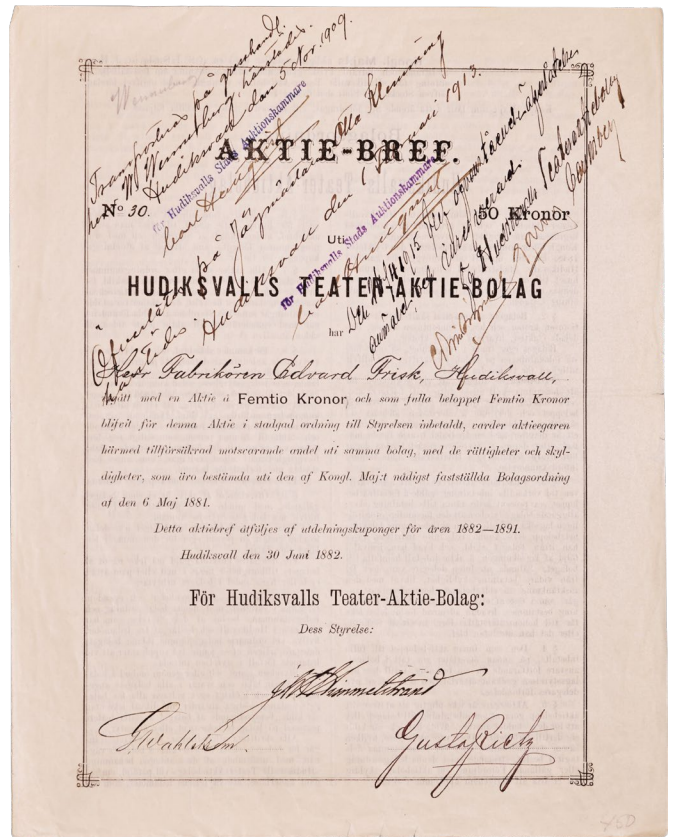 Wennberg
Transporteras på grosshandl.
herr W. Wennberg härstädes.
Hudiksvall den 5 Nov. 1909.
för Hudiksvalls Stads Auktionskammare
Carl Hellgren
AKTIE-BREF.
No 30.
50 Kronor
Öfverlåtes på Jägmästaren Otto Klemming
härstädes. Hudiksvall den 1 Februari 1913.
för Hudiksvalls Stads Auktionskammare
Carl Hellgren
Den 14/4 1913 blev ovanstående äganderätt
anmäld och
Hudiksvalls Teateraktiebolag
Uti
HUDIKSVALLS TEATER-AKTIE-BOLAG
har
Herr Fabrikören Edvard Frisk, Hudiksvall,
ingått med en Aktie à Femtio Kronor, och som fulla beloppet Femtio Kronor
blifvit för denna Aktie i stadgad ordning till Styrelsen inbetaldt, varder aktieegaren
härmed tillförsäkrad motsvarande andel uti samma bolag, med de rättigheter och skyl-
digheter, som äro bestämda uti den af Kongl. Maj:t nådigst fastställda Bolagsordning
af den 6 Maj 1881.
Detta aktiebref åtföljes af utdelningskuponger för åren 1882—1891.
Hudiksvall den 30 Juni 1882.
För Hudiksvalls Teater-Aktie-Bolag:
Dess Styrelse:
Himmelstrand
G Wahlström.
Gustaf Rietz